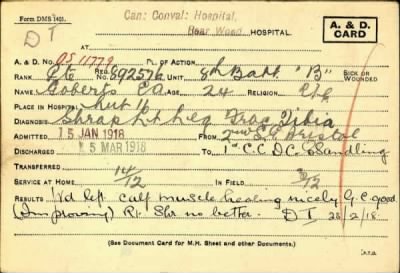 Form DMS 1401.
Can: Conval: Hospital,
Bear Wood, HOSPITAL.
A. & D. CARD
DI
AT
A. & D. No. 0511779 PL. OF ACTION
RANK Pte REG. No. 892576 UNIT 8th Batt "B" SICK OR WOUNDED
NAME Roberts E A AGE 24 RELIGION C/E
PLACE IN HOSPITAL Hut 16
DIAGNOSIS Shrap Lt Leg Frac Tibia
ADMITTED 15 JAN 1918 FROM 2nd S.G. Bristol
DISCHARGED 15 MAR 1918 TO 1st C.C.D.C. Shandling
TRANSFERRED
SERVICE AT HOME 14/12 IN FIELD 3/12
RESULTS W'd left calf muscle healing nicely G.C. good
(Improving) Rt Shr no better. DI 28/2/18.
(See Document Card for M.H. Sheet and other Documents.)